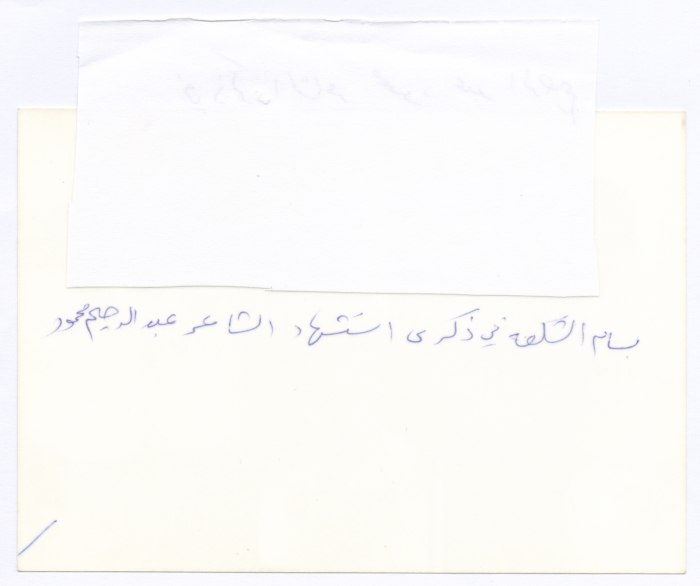 بسام الشكعة في ذكرى استشهاد الشاعر عبد الرحيم محمود